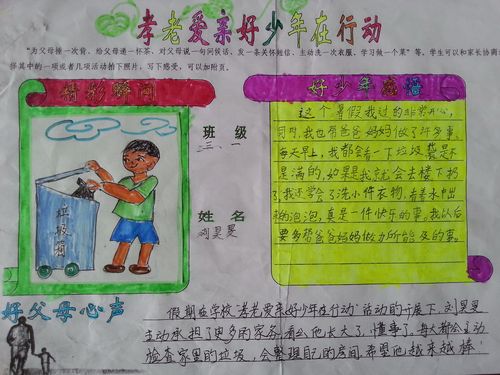 孝老爱亲好少年在行动
"为父母捶一次背、给父母递一杯茶、对父母说一句问候话、发一条关怀短信、主动洗一次衣服、学习做一个菜"等,学生可以和家长协商
择其中的一项或者几项活动拍下照片,写下感受,可以加附页。
精彩瞬间
垃圾箱
班 级
三、一
姓 名
刘昊旻
好少年感悟
这个暑假我过的非常开心,
同时,我也帮爸爸妈妈做了许多事。
每天早上,我都会看一下垃圾袋是不
是满的,如果是我就会去楼下扔
了,我还学会了洗小件衣物,看着水中出
来的泡泡,真是一件快乐的事。我以后
要多帮爸爸妈妈做力所能及的事。
好父母心声
假期在学校"孝老爱亲好少年在行动"活动的开展下,刘昊旻
主动承担了更多的家务,看他长大了,懂事了。每天都会主动
检查家里的垃圾,会整理自己的房间,希望他越来越棒!